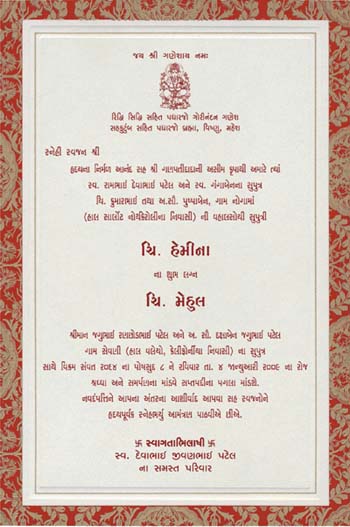 જય શ્રી ગણેશાય નમઃ
રિધ્ધિ સિધ્ધિ સહિત પધારજો ગૌરીનંદન ગણેશ
સહકુટુંબ સહિત પધારજો બ્રહ્મા, વિષ્ણુ, મહેશ
સ્નેહી સ્વજન શ્રી
હૃદયના નિર્મળ આનંદ સહ શ્રી ગણપતીદાદાની અસીમ કૃપાથી અમારે ત્યાં
સ્વ. રામાભાઈ દેવાભાઈ પટેલ અને સ્વ. ગંગાબેનના સુપુત્ર
ચિ. કુમારભાઈ તથા અ.સૌ. પુષ્પાબેન, ગામ નોગામા
(હાલ સાર્લોટ નોર્થકેરોલીના નિવાસી) ની વહાલસોયી સુપુત્રી
ચિ. હેમીના
ના શુભ લગ્ન
ચિ. મેહુલ
શ્રીમાન જગુભાઈ રણછોડભાઈ પટેલ અને અ. સૌ. દક્ષાબેન જગુભાઈ પટેલ
ગામ સેવાળી (હાલ વલેયો, કેલીફોર્નીયા નિવાસી) ના સુપુત્ર
સાથે વિક્રમ સંવત ૨૦૬૫ ના પોષસુદ ૮ ને રવિવાર તા. ૪ જાન્યુઆરી ૨૦૦૯ ના રોજ
શ્રધ્ધા અને સમર્પણના માંડવે સપ્તપદીના પગલા માંડશે.
નવદંપતિને આપના અંતરના આશીર્વાદ આપવા સહ સ્વજનોને
હૃદયપૂર્વક સ્નેહભર્યુ આમંત્રણ પાઠવીએ છીએ.
卐 સ્વાગતાભિલાષી 卐
સ્વ. દેવાભાઈ જીવણભાઈ પટેલ
ના સમસ્ત પરિવાર